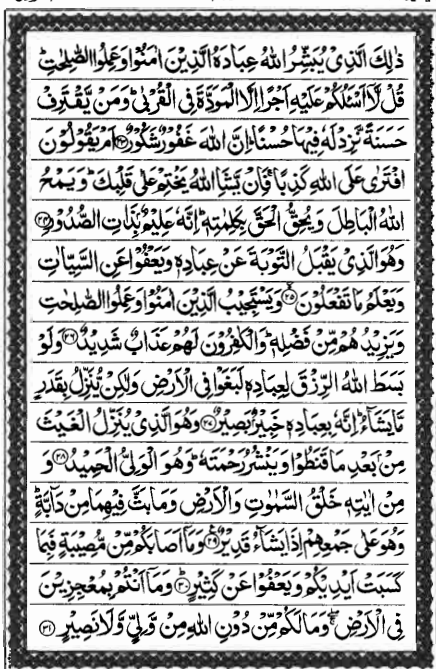 ذٰلِكَ الَّذِیْ یُبَشِّرُ اللّٰهُ عِبَادَهُ الَّذِیْنَ اٰمَنُوْا وَعَمِلُوا الصّٰلِحٰتِؕ
قُلْ لَّاۤ اَسْـَٔلُكُمْ عَلَیْهِ اَجْرًا اِلَّا الْمَوَدَّةَ فِی الْقُرْبٰیؕ وَمَنْ یَّقْتَرِفْ
حَسَنَةً نَّزِدْ لَهٗ فِیْهَا حُسْنًاؕ اِنَّ اللّٰهَ غَفُوْرٌ شَكُوْرٌ ﴿۲۳﴾ اَمْ یَقُوْلُوْنَ
افْتَرٰی عَلَی اللّٰهِ كَذِبًاۚ فَاِنْ یَّشَاِ اللّٰهُ یَخْتِمْ عَلٰی قَلْبِكَؕ وَیَمْحُ
اللّٰهُ الْبَاطِلَ وَیُحِقُّ الْحَقَّ بِكَلِمٰتِهٖؕ اِنَّهٗ عَلِیْمٌۢ بِذَاتِ الصُّدُوْرِ ﴿۲۴﴾
وَهُوَ الَّذِیْ یَقْبَلُ التَّوْبَةَ عَنْ عِبَادِهٖ وَیَعْفُوْا عَنِ السَّیِّاٰتِ
وَیَعْلَمُ مَا تَفْعَلُوْنَ ﴿۲۵﴾ وَیَسْتَجِیْبُ الَّذِیْنَ اٰمَنُوْا وَعَمِلُوا الصّٰلِحٰتِ
وَیَزِیْدُهُمْ مِّنْ فَضْلِهٖؕ وَالْكٰفِرُوْنَ لَهُمْ عَذَابٌ شَدِیْدٌ ﴿۲۶﴾ وَلَوْ
بَسَطَ اللّٰهُ الرِّزْقَ لِعِبَادِهٖ لَبَغَوْا فِی الْاَرْضِ وَلٰكِنْ یُّنَزِّلُ بِقَدَرٍ
مَّا یَشَآءُؕ اِنَّهٗ بِعِبَادِهٖ خَبِیْرٌۢ بَصِیْرٌ ﴿۲۷﴾ وَهُوَ الَّذِیْ یُنَزِّلُ الْغَیْثَ
مِنْۢ بَعْدِ مَا قَنَطُوْا وَیَنْشُرُ رَحْمَتَهٗؕ وَهُوَ الْوَلِیُّ الْحَمِیْدُ ﴿۲۸﴾ وَ
مِنْ اٰیٰتِهٖ خَلْقُ السَّمٰوٰتِ وَالْاَرْضِ وَمَا بَثَّ فِیْهِمَا مِنْ دَآبَّةٍؕ
وَهُوَ عَلٰی جَمْعِهِمْ اِذَا یَشَآءُ قَدِیْرٌ ﴿۲۹﴾ وَمَاۤ اَصَابَكُمْ مِّنْ مُّصِیْبَةٍ فَبِمَا
كَسَبَتْ اَیْدِیْكُمْ وَیَعْفُوْا عَنْ كَثِیْرٍ ﴿۳۰﴾ وَمَاۤ اَنْتُمْ بِمُعْجِزِیْنَ
فِی الْاَرْضِۖ وَمَا لَكُمْ مِّنْ دُوْنِ اللّٰهِ مِنْ وَّلِیٍّ وَّلَا نَصِیْرٍ ﴿۳۱﴾